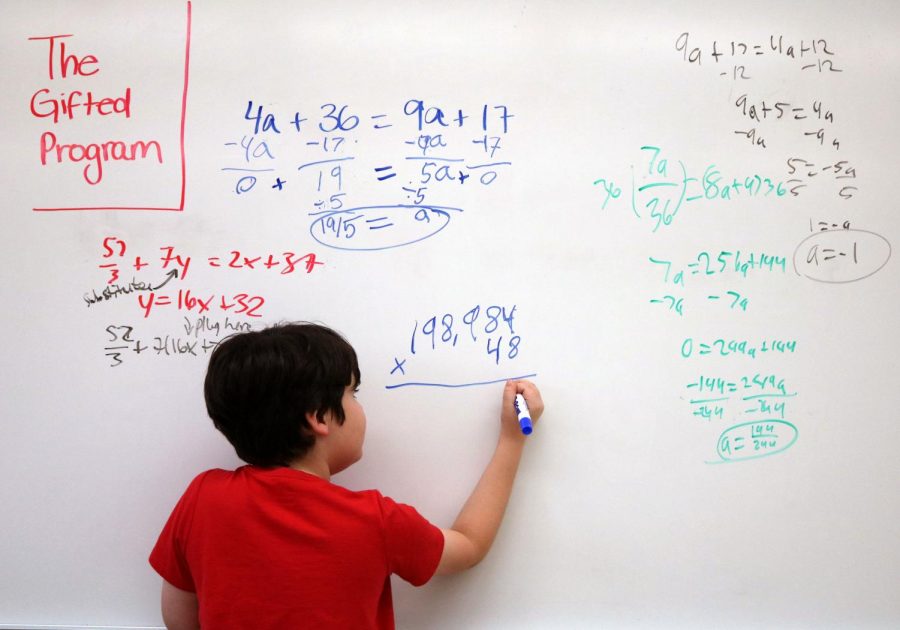 The
Gifted
Program
4a + 36 = 9a + 17
-4a -17 -4a -17
0 + 19 = 5a + 0
÷5 ÷5
19/5 = a
57/3 + 7y = 2x + 37
substitute
y = 16x + 32
plug here
+ 7(16x +
198,984
x 48
9a + 17 = 4a + 12
-12 -12
9a + 5 = 4a
-9a -9a
5 = -5a
5 5
1 = -a
a = -1
36 (7a/36) = (8a + 4)36
7a = 256a + 144
-7a -7a
0 = 249a + 144
-144 = 249a
-244 -244
a = 144/244